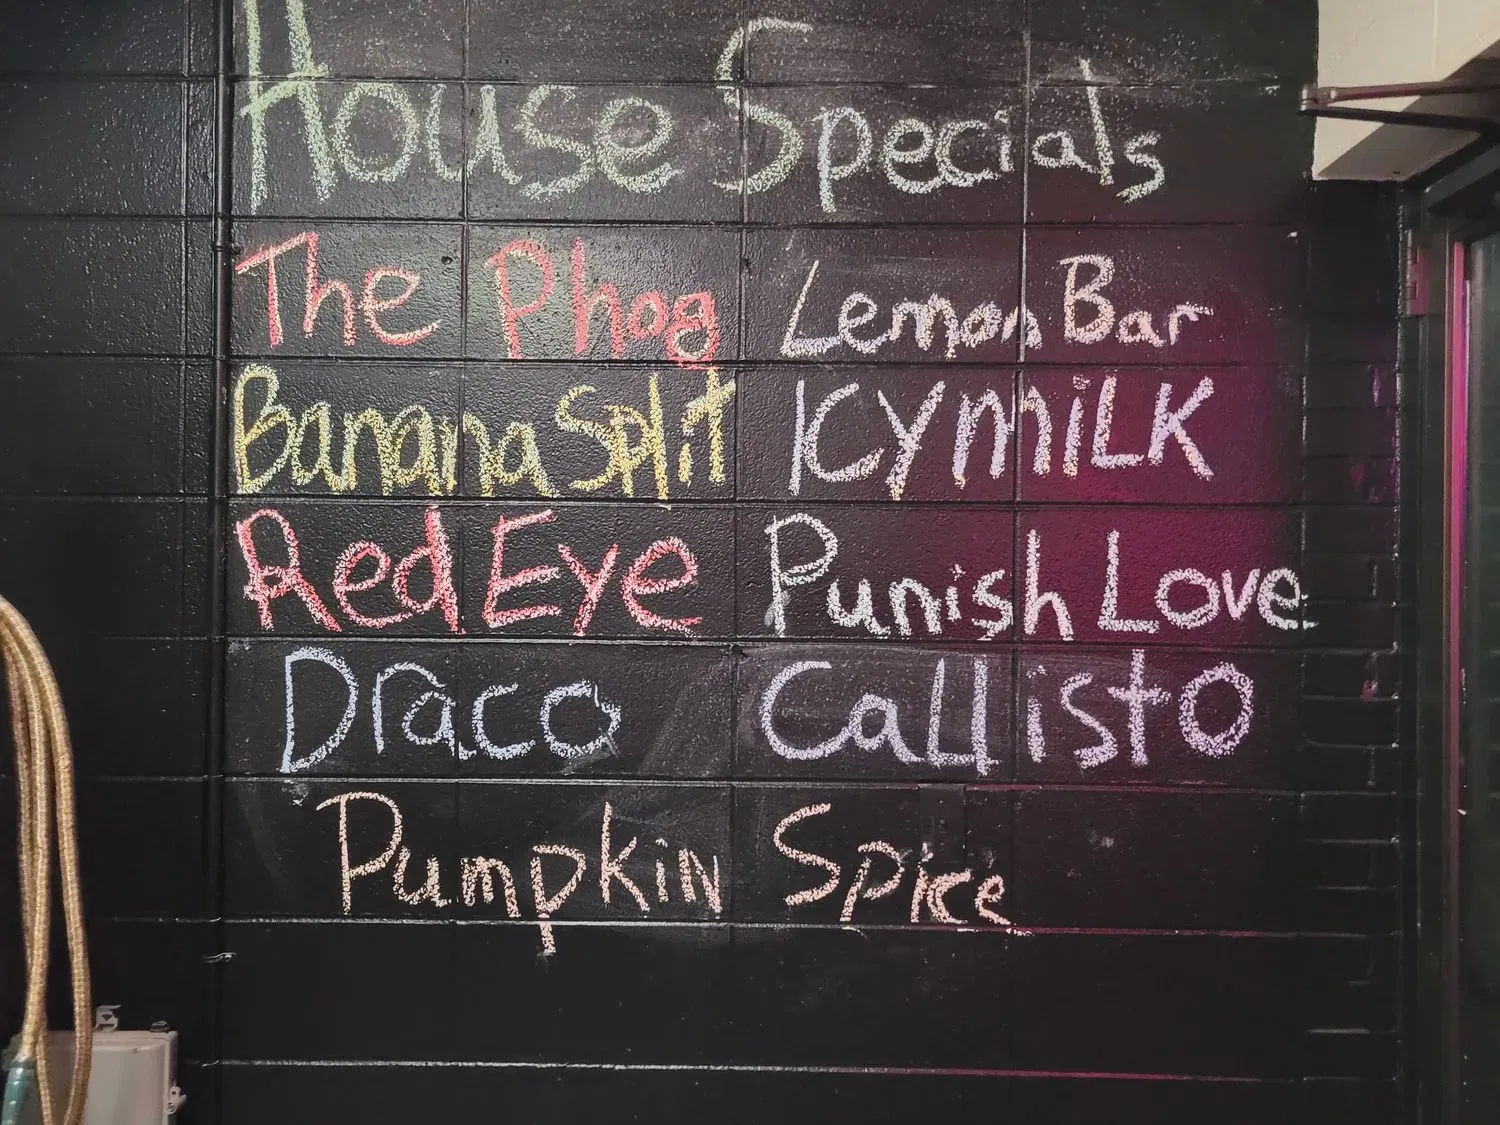 House Specials
The Phog Lemon Bar
Banana Split ICYMILK
Red Eye Punish Love
Draco Callisto
Pumpkin Spice